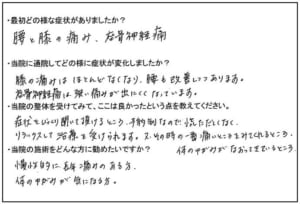 ・最初どの様な症状がありましたか？
腰と膝の痛み、坐骨神経痛
・当院に通院してどの様に症状が変化しましたか？
膝の痛みはほとんどなくなり、腰も改善しつつあります。
坐骨神経痛は強い痛みが出にくくなっています。
・当院の整体を受けてみて、ここは良かったという点を教えてください。
症状をじっくり聞いて頂けるところ。予約制なので慌ただしくなく、
リラックスして治療を受けられます。又、その時の一番痛いところをみてくれるところ。
・当院の施術をどんな方に勧めたいですか？
体のゆがみがなおってきているところ。
慢性的に長年痛みのある方、
体のゆがみが気になる方。